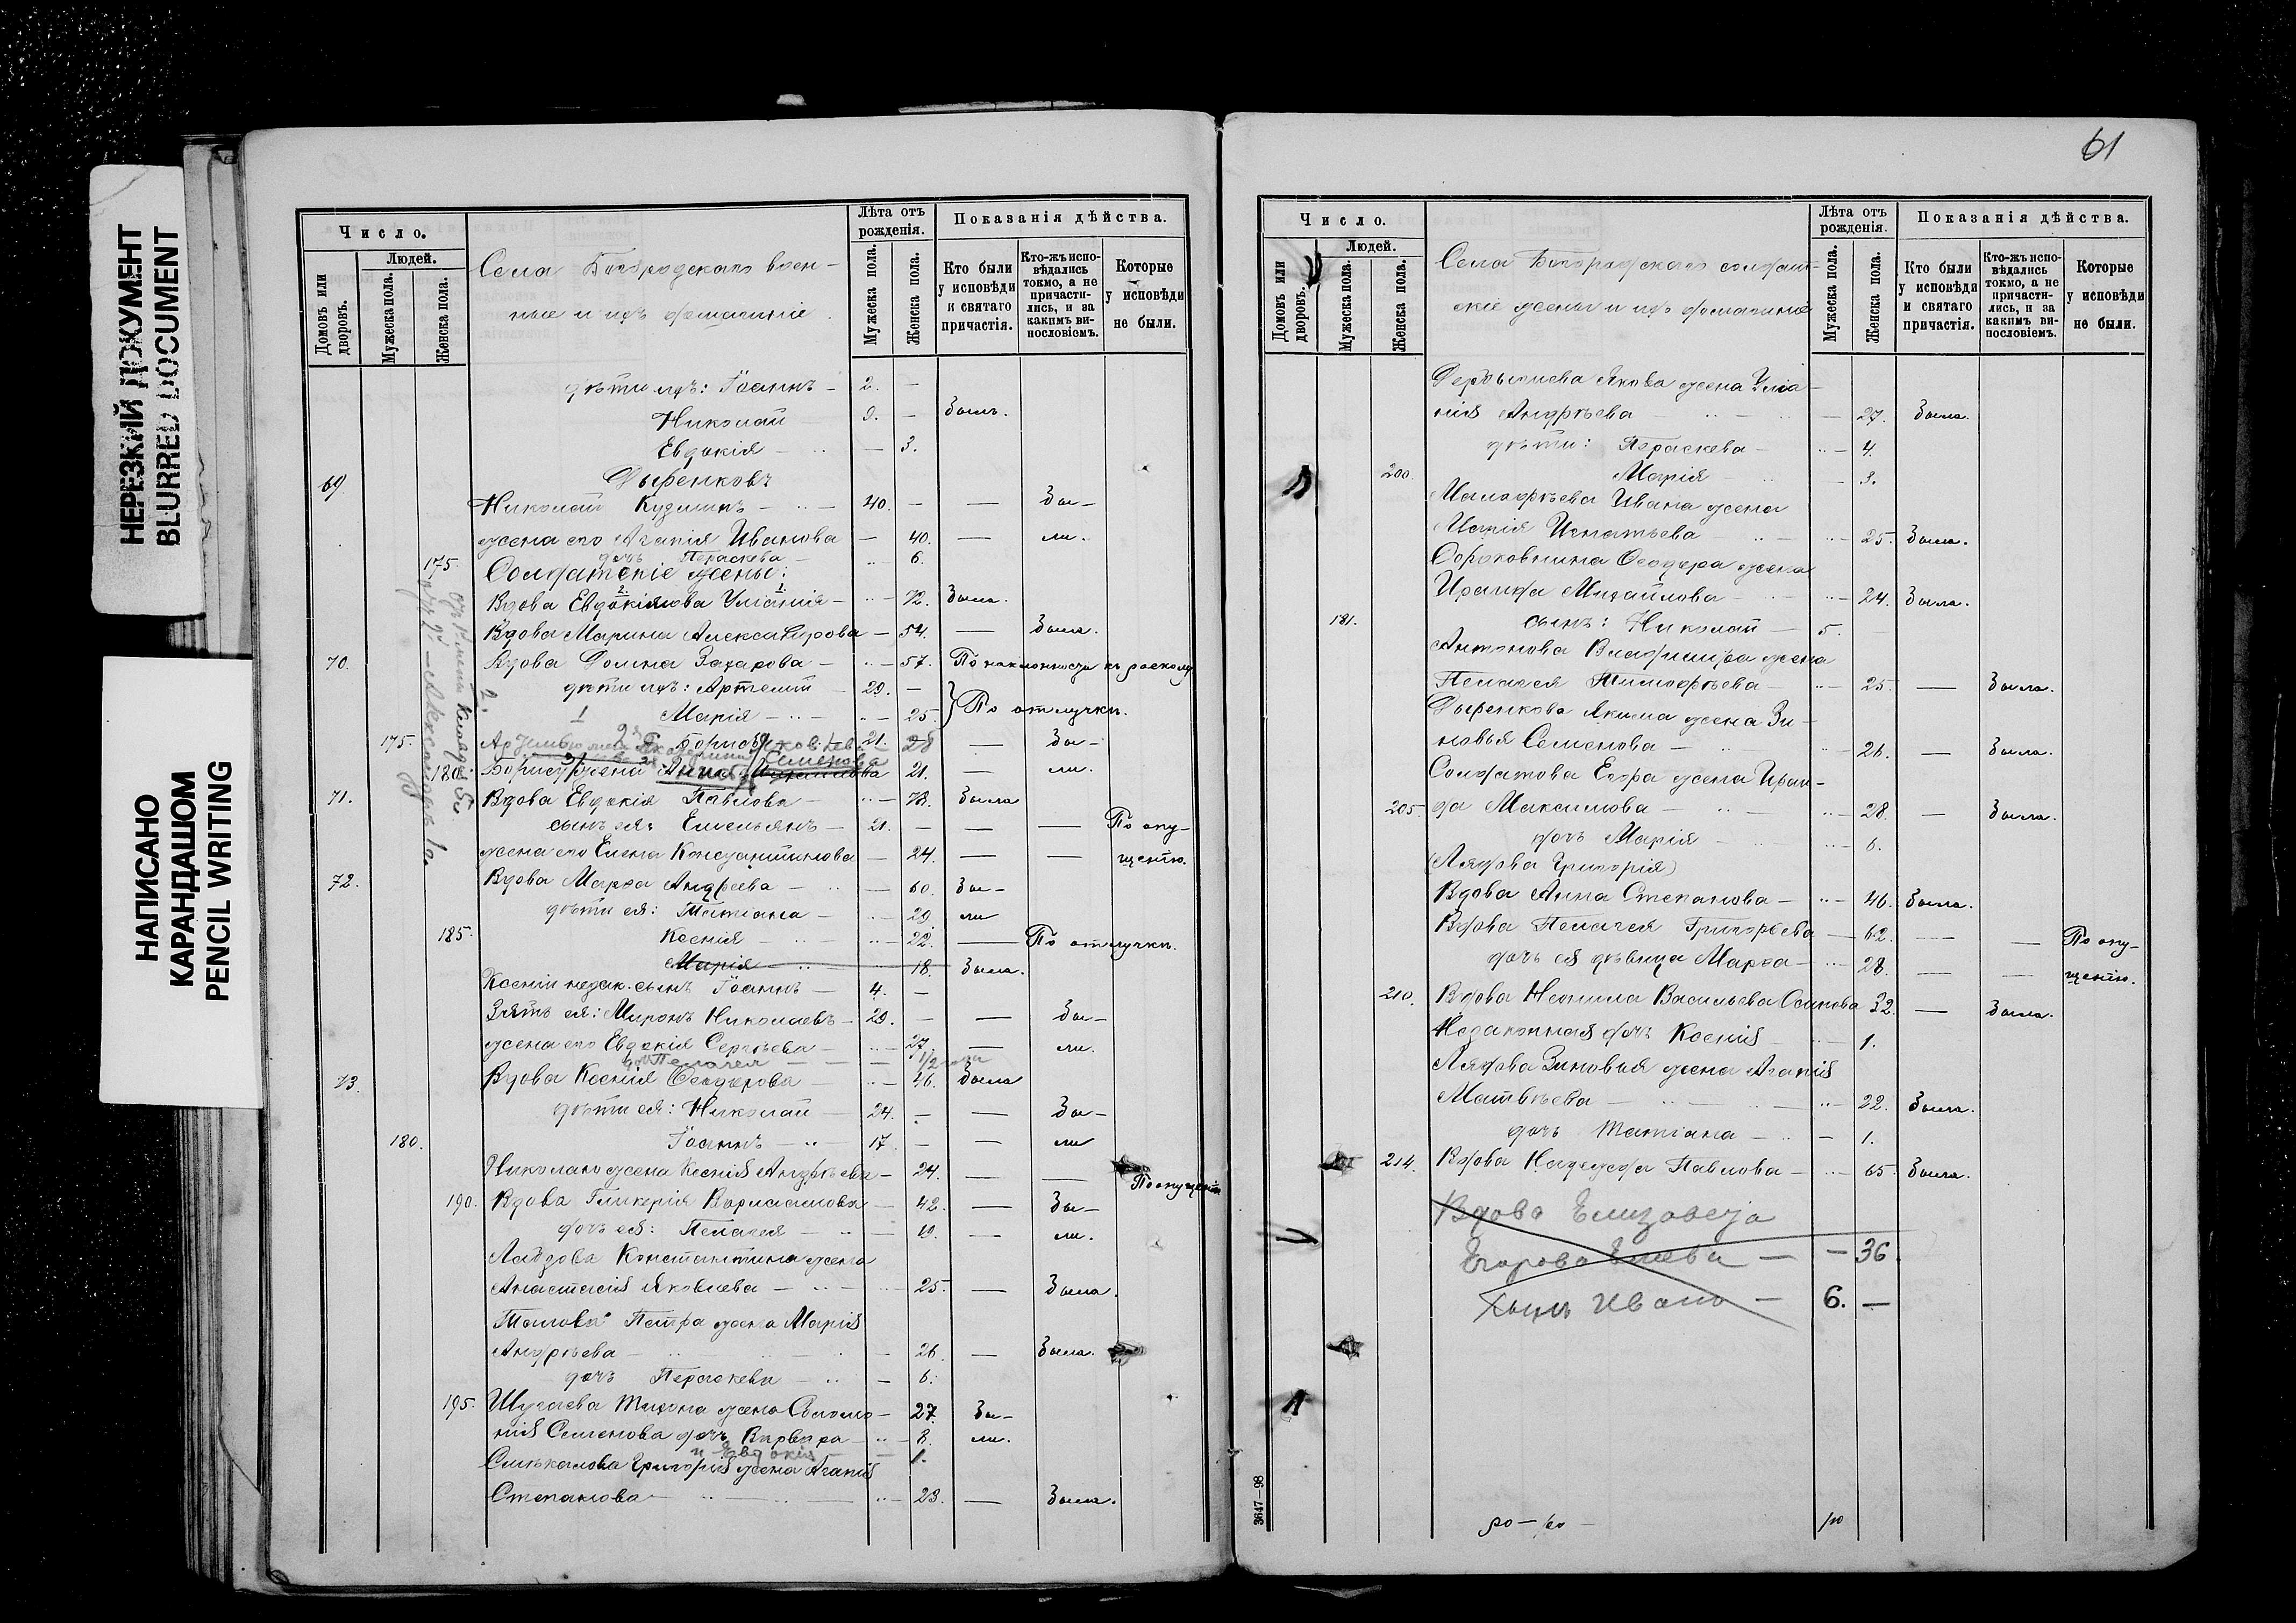 НЕРЕЗКИЙ ДОКУМЕНТ
BLURRED DOCUMENT
НАПИСАНО
КАРАНДАШОМ
PENCIL WRITING
Число.
Людей.
Домовъ или дворовъ.
Мужеска пола.
Женска пола.
Села Богородскаго воен-
ные и ихъ домашніе.
Лѣта отъ рожденія.
Мужеска пола.
Женска пола.
Показанія дѣйства.
Кто были у исповѣди и святаго причастія.
Кто-жъ испо-вѣдались токмо, а не причасти-лись, и за какимъ ви-нословіемъ.
Которые у исповѣди не были.
дѣти ихъ: Іоаннъ – 2. –
Николай 9. – Былъ.
Евдокія – — 3.
69 Дыренковъ
Николай Кузминъ – 40. – — Бы-
жена его Агапія Иванова – 40. — ли.
дочь Параскева – 6.
175. Солдатскіе жены:
Вдова Евдокимова Уліанія – 72. Была.
Вдова Марина Александрова – 54. — Была.
70. Вдова Домна Захарова – 57. По наклонности къ расколу
дѣти ихъ: Артемій 29. –
Марія – 25. По отлучкѣ.
175. 21. 28 — Бы-
180. Бориса жена Анна 21. — ли.
71. Вдова Евдокія Павлова – 73. Была
сынъ ея Емельянъ – 21. – — — По опу-
жена его Елена Константинова – 24. — — щенію.
72. Вдова Марѳа Андреева – 60. Бы-
дѣти ея: Татіана – 29. ли
185. Ксенія – 22. — По отлучкѣ.
Марія 18. Была.
Ксеніи незак. сынъ Іоаннъ – 4. –
Зять ея: Миронъ Николаевъ – 29. – — Бы-
жена его Евдокія Сергѣева – 27. — ли.
Пелагея – 1/2 года
73. Вдова Ксенія Ѳеодорова – 46. Была
дѣти ея: Николай – 24. – — Бы-
180. Іоаннъ – 17 – — ли
Николаю жена Ксенія Андрѣева – 24. — — По опущенію
190. Вдова Гликерія Варлаамова – 42. — Бы-
дочь ея: Пелагея – 19. — ли.
Константина жена
Анастасія Яковлева – 25. — Была.
Петра жена Марія
Андрѣева – 26. — Была.
дочь Параскева – 6.
195. Шугаева Тихона жена Соломо-
27. Бы-
нія Семенова дочь Варвара 8. ли.
и Евдокія 1.
Григорія жена Агапія
Степанова – 23. — Была.
61
Число.
Людей.
Домовъ или дворовъ.
Мужеска пола.
Женска пола.
Села Богородскаго солдат-
скіе жены и ихъ домашніе
Лѣта отъ рожденія.
Мужеска пола.
Женска пола.
Показанія дѣйства.
Кто были у исповѣди и святаго причастія.
Кто-жъ испо-вѣдались токмо, а не причасти-лись, и за какимъ ви-нословіемъ.
Которые у исповѣди не были.
Якова жена Уліа-
нія Андрѣева – 27. Была.
дѣти: Параскева – 4.
200. Марія – 3.
Ивана жена
Марія Игнатьева – 25. Была.
Ѳеодора жена
Ираида Михайлова – 24. Была.
181. сынъ: Николай – 5.
Антонова Владиміра жена
Пелагея Тимофѣева – 25. — Была.
Дыренкова Якима жена Зи-
новья Семенова – 26. — Была.
Солдатова Егора жена Ираи-
205. да Максимова – 28. — Была.
дочь Марія – 6.
(Лядова Григорія)
Вдова Анна Степанова – 46. Была.
Вдова Пелагея Григорьева – 62. — — По опу-
дочь ея дѣвица Марѳа – 28. — — щенію.
210. Вдова Неонила Васильева Осипова 32. — Была.
Незаконная дочь Ксенія – 1.
Лядова Зиновья жена Агапія
Матвѣева – 22. Была.
дочь Татіана – 1.
214. Вдова Надежда Павлова – 65. Была.
Вдова Елизавета
Егорова – – 36.
Сынъ Иванъ – 6. –
3647—98